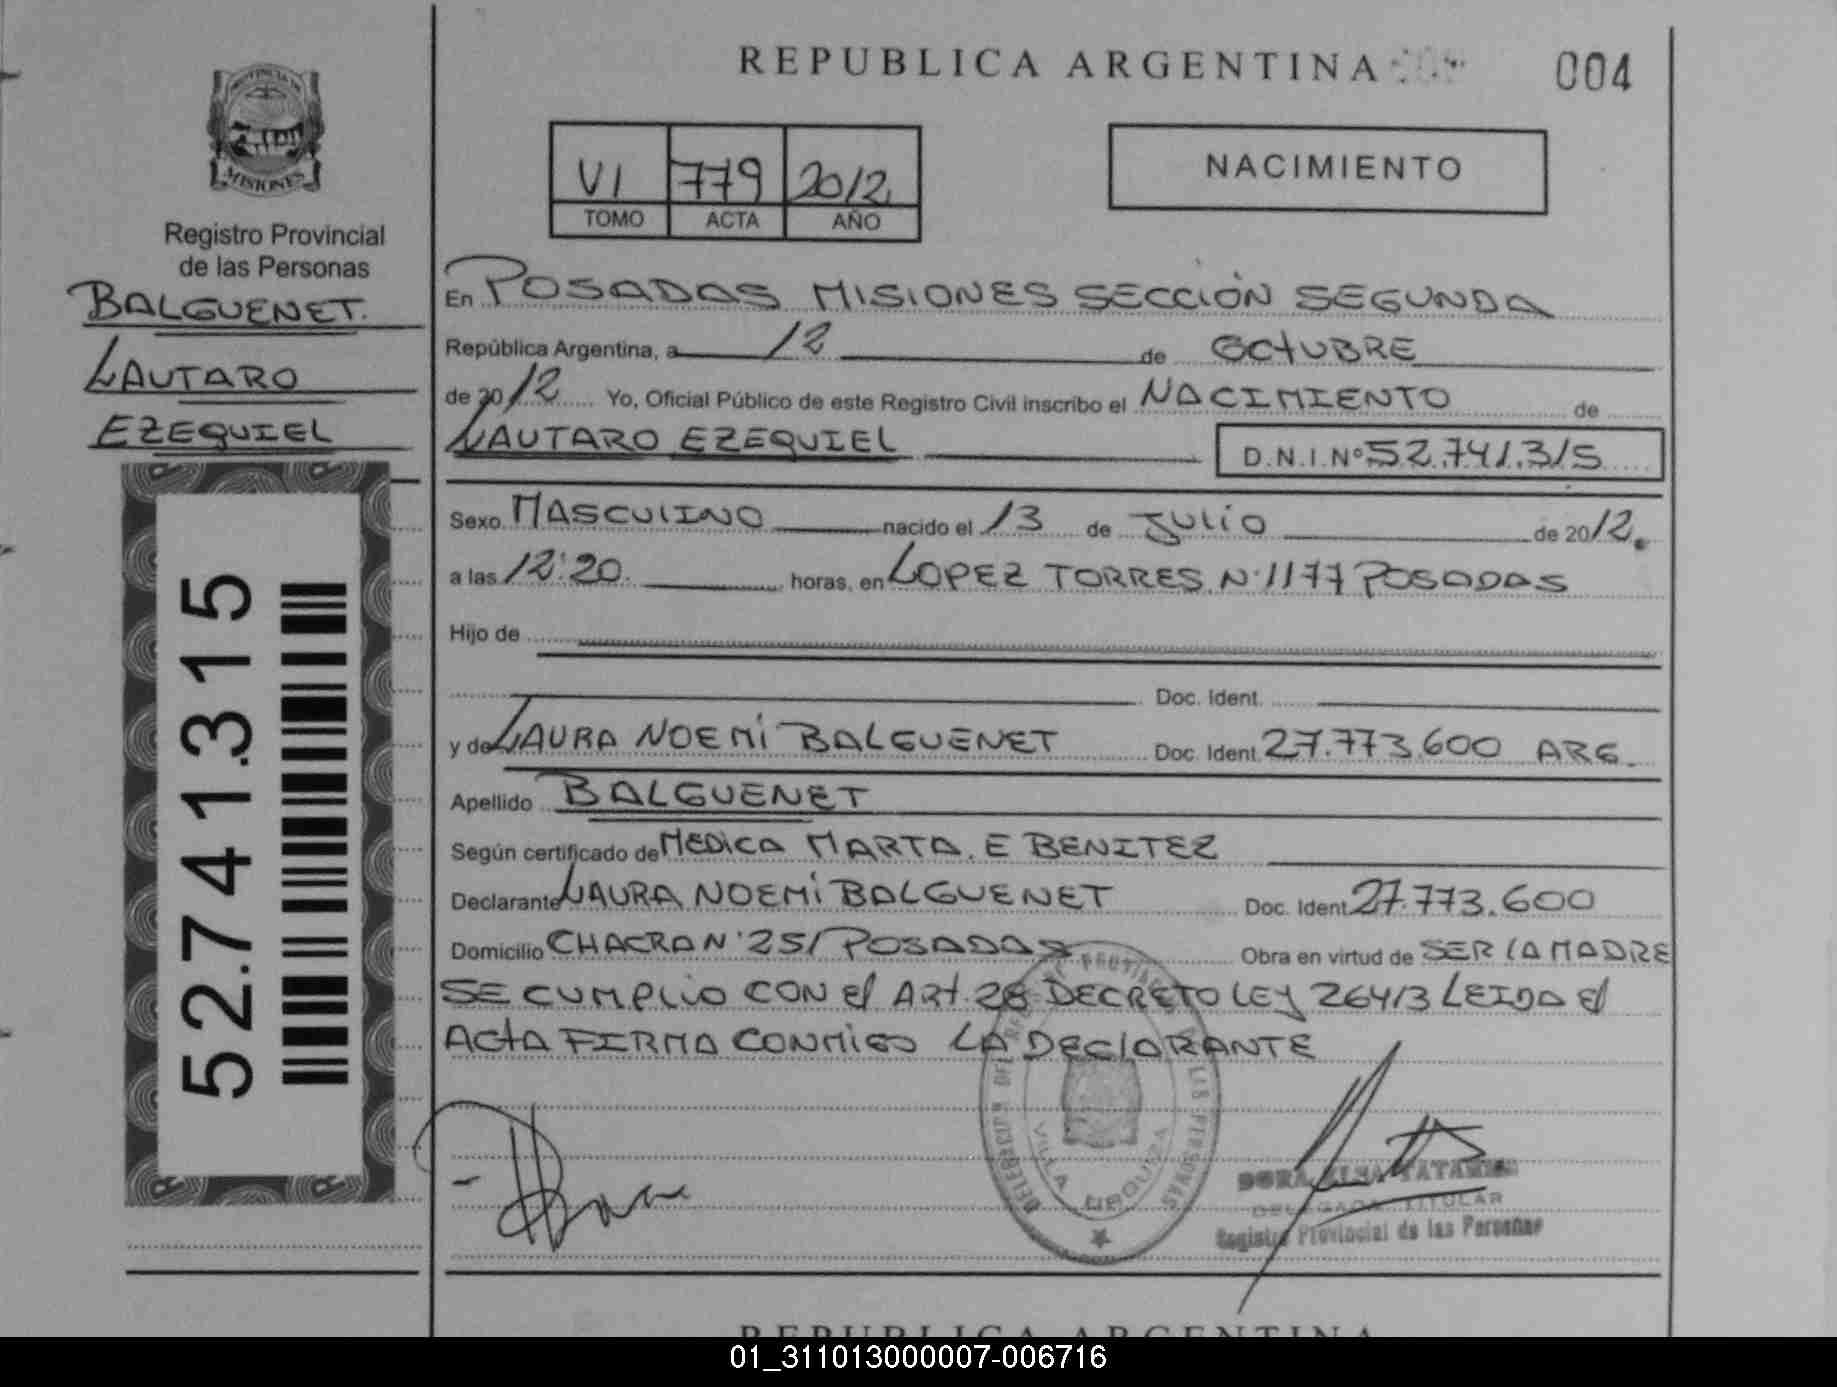 REPUBLICA ARGENTINA
004
PROVINCIA DE
MISIONES
Registro Provincial
de las Personas
BALGUENET.
LAUTARO
EZEQUIEL
52.741.315
VI 779 2012
TOMO ACTA AÑO
NACIMIENTO
En POSADAS MISIONES SECCIÓN SEGUNDA
República Argentina, a 12 de OCTUBRE
de 2012 Yo, Oficial Público de este Registro Civil inscribo el NACIMIENTO de
LAUTARO EZEQUIEL D.N.I.Nº 52.741.315
Sexo MASCULINO nacido el 13 de JULIO de 2012.
a las 12:20. horas, en LOPEZ TORRES Nº 1177 POSADAS
Hijo de
Doc. Ident.
y de LAURA NOEMÍ BALGUENET Doc. Ident. 27.773.600 ARG.
Apellido BALGUENET
Según certificado de MEDICA MARTA. E BENITEZ
Declarante LAURA NOEMÍ BALGUENET Doc. Ident. 27.773.600
Domicilio CHACRA Nº 251 POSADAS Obra en virtud de SER LA MADRE
SE CUMPLIO CON El ARt. 28 DECRETO LEY 26413 LEIDA El
ACtA FIRMA CONMIGO LA DEClARANTE
DELEGACION DEL REG. PROVINCIAL DE LAS PERSONAS
VILLA URQUIZA
DORA ELSA
DELEGADA TITULAR
Registro Provincial de las Personas
REPUBLICA ARGENTINA
01_311013000007-006716